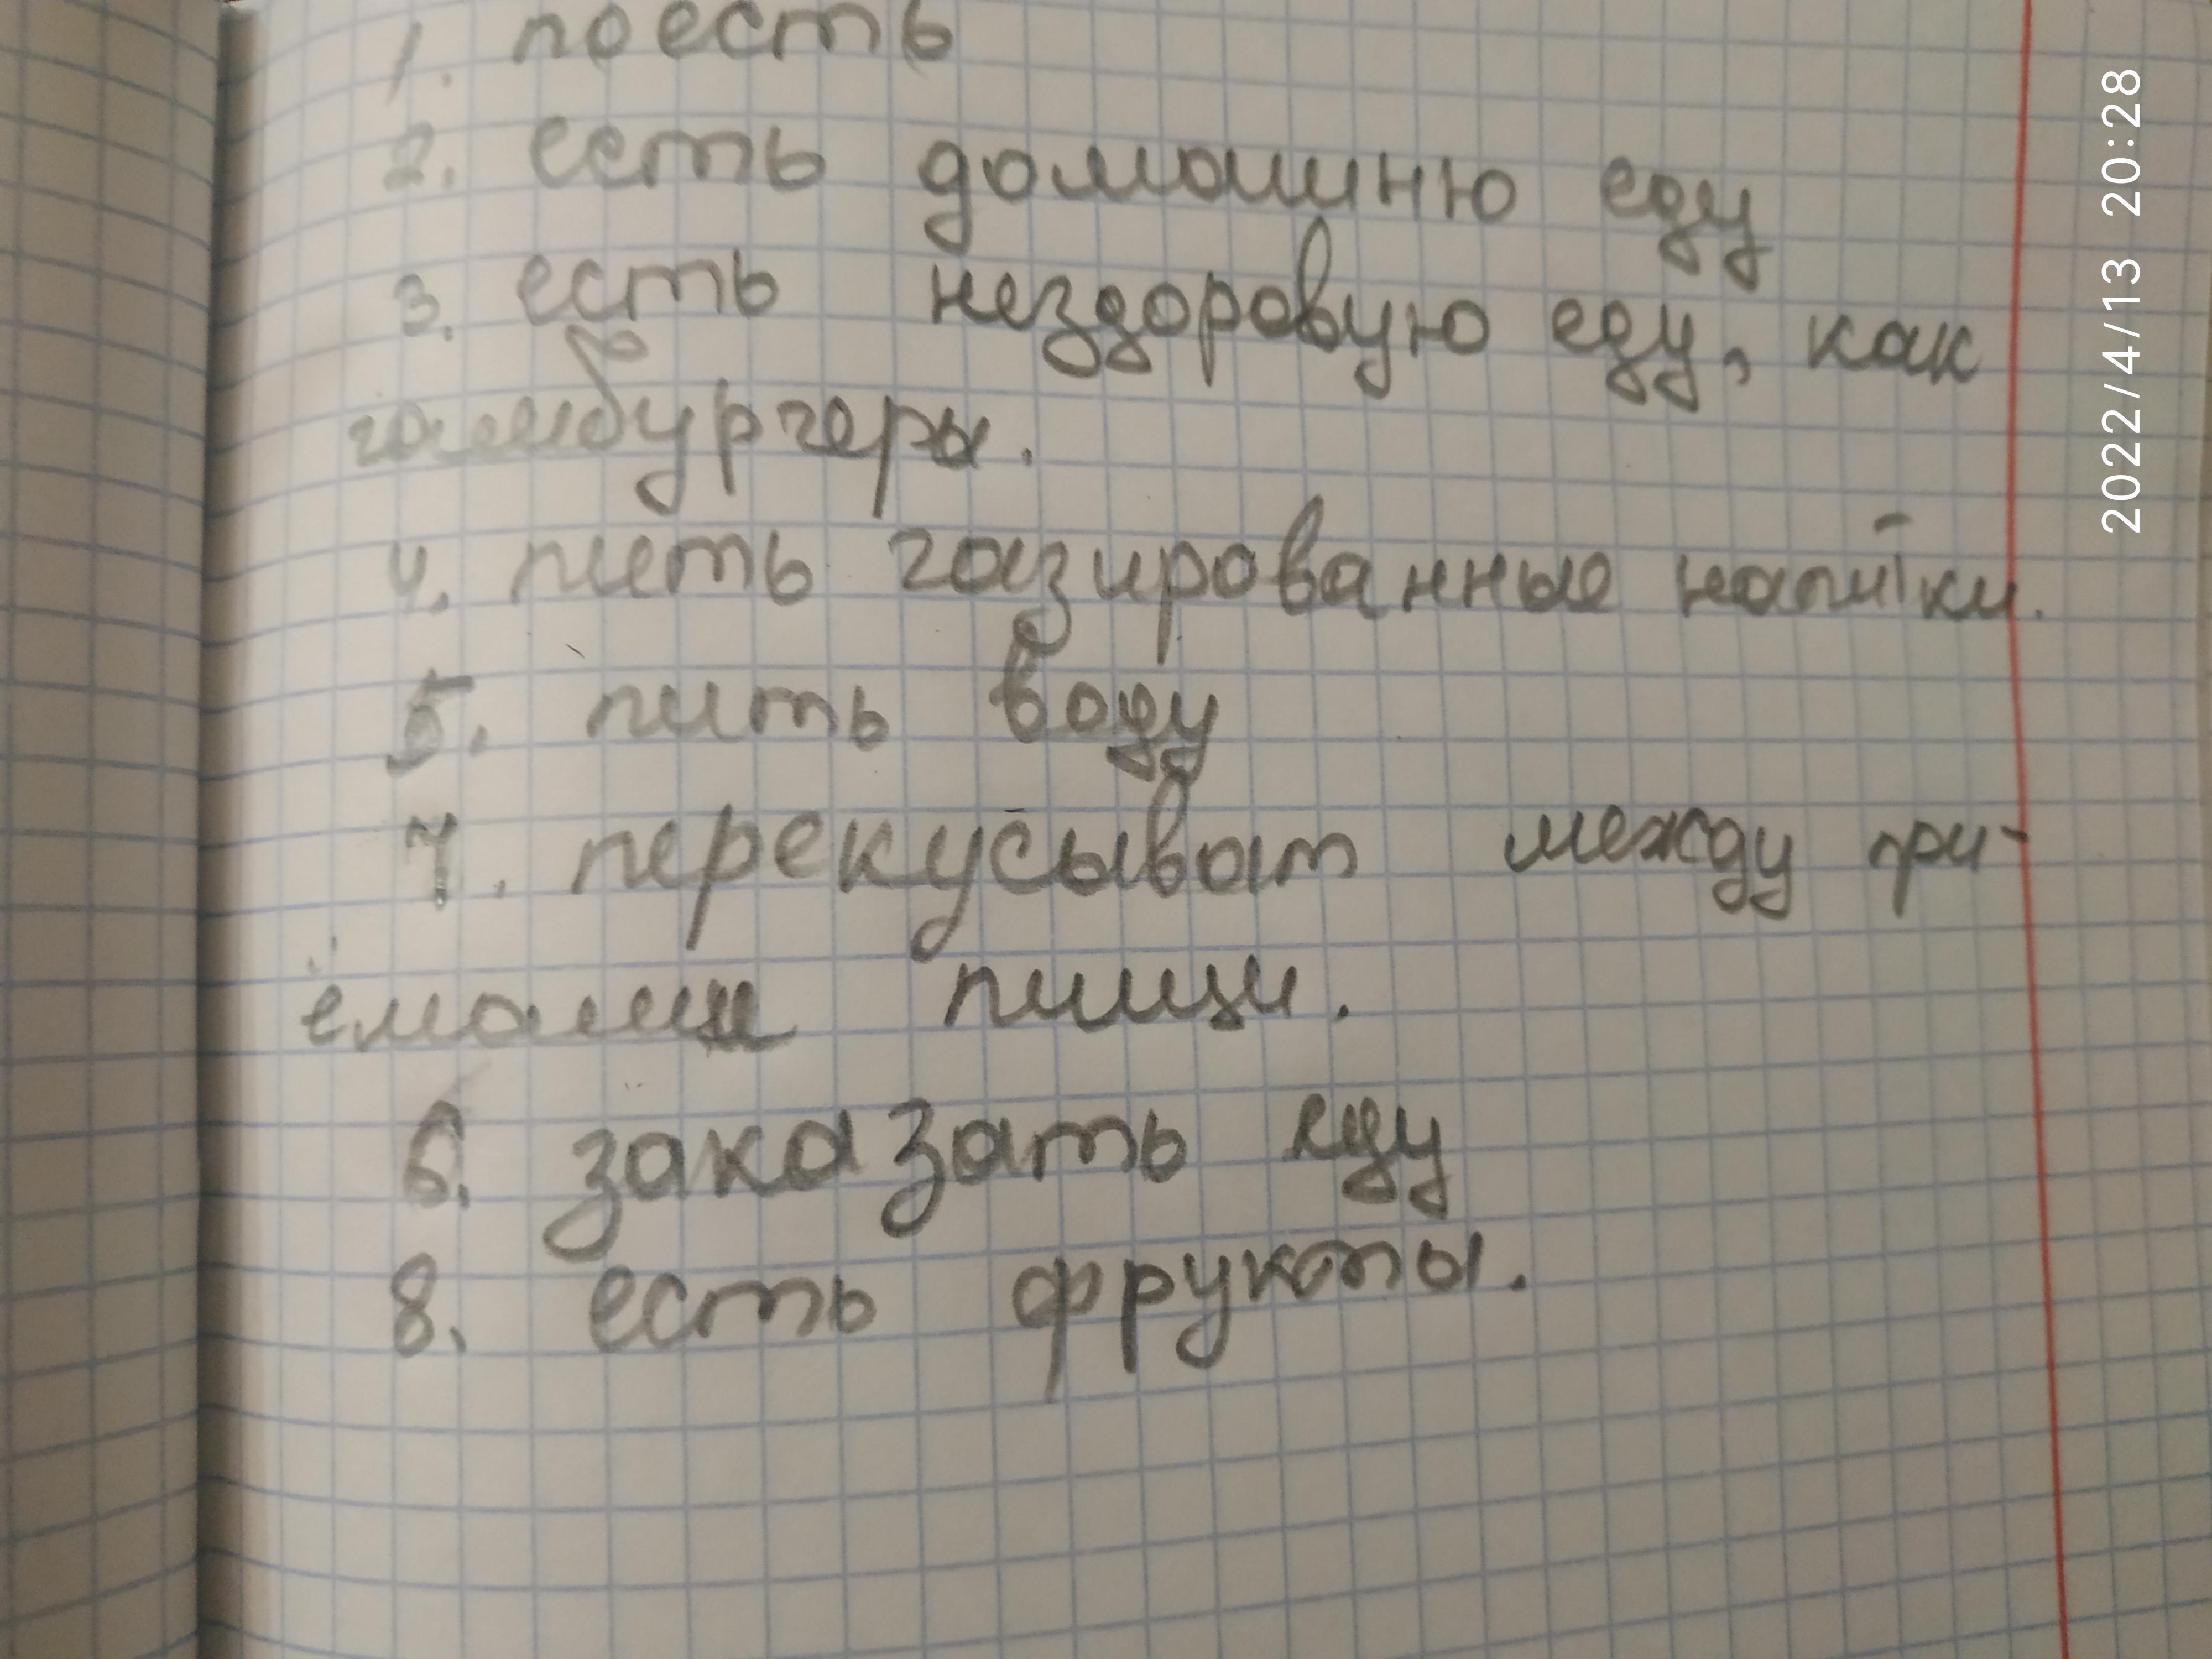 1. поесть
2. есть домошнюю еду
3. есть нездоровую еду, как
гамбургеры.
4. пить газированные напитки.
5. пить воду
7. перекусыват между при-
ёмами пищи.
6. заказать еду
8. есть фрукты.
2022/4/13 20:28